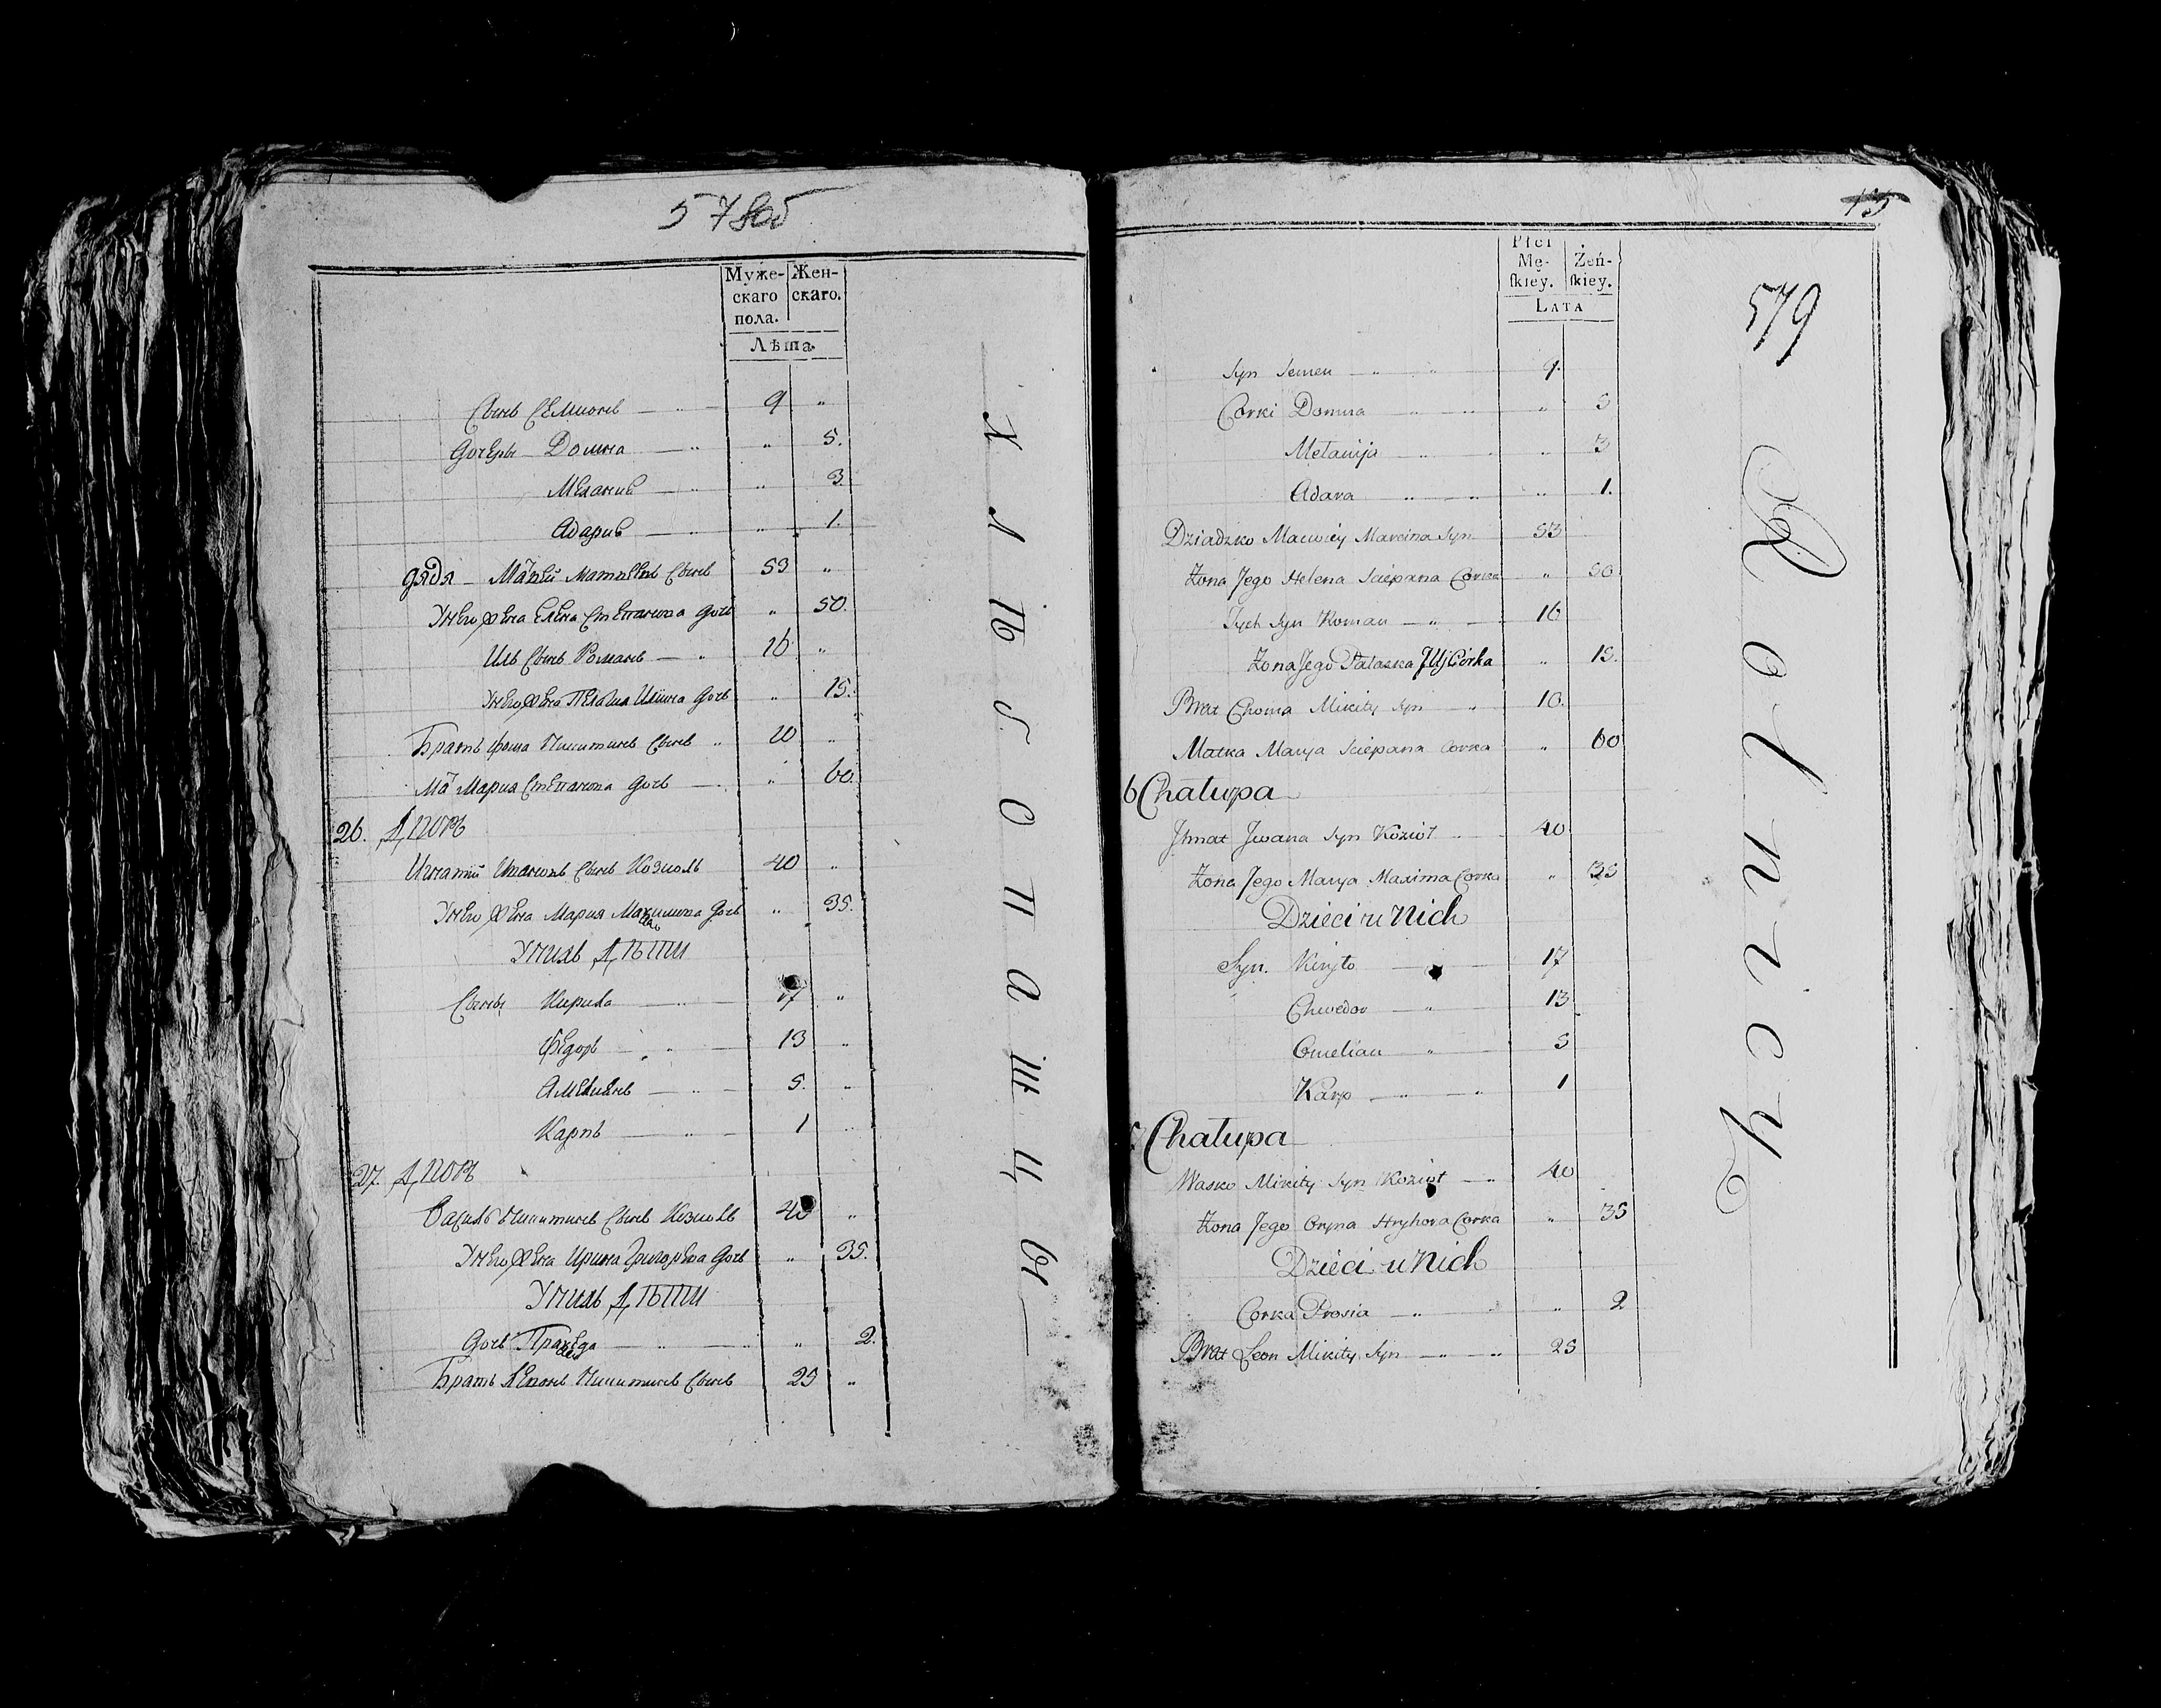 578об
Муже- Жен-
скаго скаго.
пола.
Лѣта.
Сынъ Семионъ — „ 9 „
Дочеры Домна — „ „ 5.
Меланиѣ — „ „ 3.
Адариѣ — „ „ 1.
дядя — Матвей Сынъ 53 „
Унего жена Елена Степанова дочь „ 50.
Ихъ Сынъ Романъ — „ 16 „
Унего жена Пелагия дочь „ 15.
Братъ Фома Никитинъ Сынъ „ 10 „
Мать Мария Степанова дочь — „ 60.
26. Дворъ
Игнатий Ивановъ Сынъ Козиолъ 40 „
Унего жена Мария Максимова дочь „ 35.
Унихъ Дѣти
Сыны Кирила — „ 17 „
Федоръ — „ 13 „
Амелианъ — „ 5. „
Карпъ — „ 1 „
27. Дворъ
Василь Никитинъ Сынъ Козиолъ 40 „
Унего жена Ирина Григорева дочь „ 35.
Унихъ Дѣти
дочь — „ „ 2.
Братъ Леонъ Никитинъ Сынъ 25 „
Хлѣбопашцы
15
Płci
Mę- Żeń-
ſkiey. ſkiey.
LATA
579
Syn Semen — „ „ 9.
Corki Domna — „ „ 5
Mełanija — „ „ 3
Adara „ — „ „ 1.
Dziadzko Maciwiey Marcina Syn 53
Żona Jego Helena Sciepana Corka „ 50
Jych Syn Roman — „ — 16
Żona Jego Pałaska Jllj Córka „ 15.
Brat Choma Mikity Syn „ 10.
Matka Marya Sciepana Corka „ 60
6 Chałupa
Jhnat Jwana Syn Kozioł „ 40
Żona Jego Marya Maxima Corka „ 35
Dzieci u Nich
Syn. Kiryło — 17
Chwedor — „ 13
Omelian — „ 5
Karp — „ „ 1
Chałupa
Wasko Mikity Syn Kozioł — „ 40
Żona Jego Oryna Hryhora Corka „ 35
Dzieci u Nich
Corka Prosia — „ „ 2
Brat Leon Mikity Syn — „ „ 25
Rolnicy